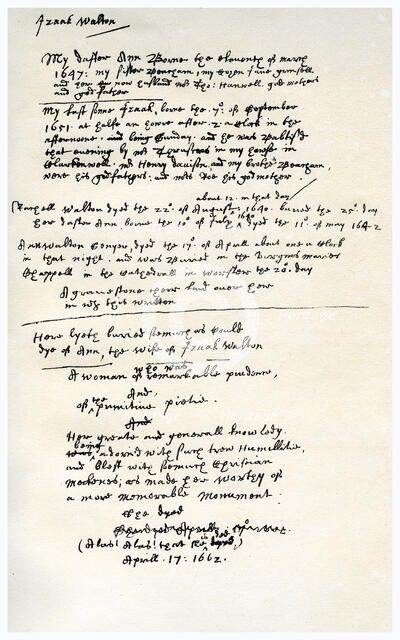 Izaak Walton
My dafter Ann borne the eleventh of march
1647: my sister Beacham, my cozen Jane Grinsell
and her now husband Mr Tho: Hanwell. godmothers
and godfather
My last sonne Izaak, borne the 7º. of September
1651. at halfe an howre after. 2. a clock in the
afternoone. and being Sunday. and he was baptised
that evening by Mr Thruscross in my howse in
Clarkenwell. Mr Henry Davison and my brother Beacham,
were his godfathers. and Mrs Roe his godmother
about 12. in that day
Rachell Walton dyed the 22º. of August 1640. buried the 25º. day
her dafter Ann, borne the 10º of July 1640 & dyed the 11º. of may 1642
Ann Walton Senyor, dyed the 17º. of Aprill about one a clock
in that night. and was buried in the Virgins maries
Chappell in the Cathedrall in Worster the 20º. day
A gravestone ther laid over her
in wch this written
Here lyeth buried soemuch as could
dye of Ann, the wife of Izaak Walton
who was
A woman of remarkable prudence,
And,
of the primitive pietie.
And
Her greate and generall knowledg.
being
was adorn'd with such trew Humillitie,
and blest with soemuch Christian
meekenes; as made her worthy of
a more memorable Monument.
She dyed
(Alas! Alas! that she is dead,)
Aprill. 17: 1662.